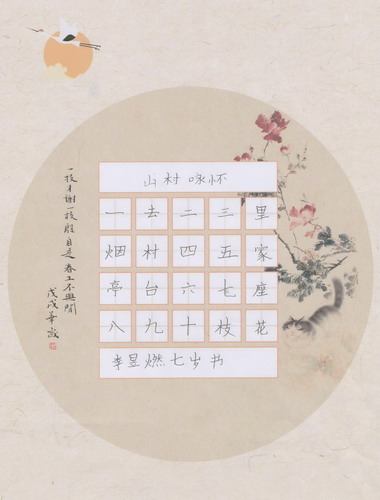 山村咏怀
一去二三里
烟村四五家
亭台六七座
八九十枝花
李昱燃七岁书
一枝才谢一枝殷自是春工不与闲
戊戌華敬